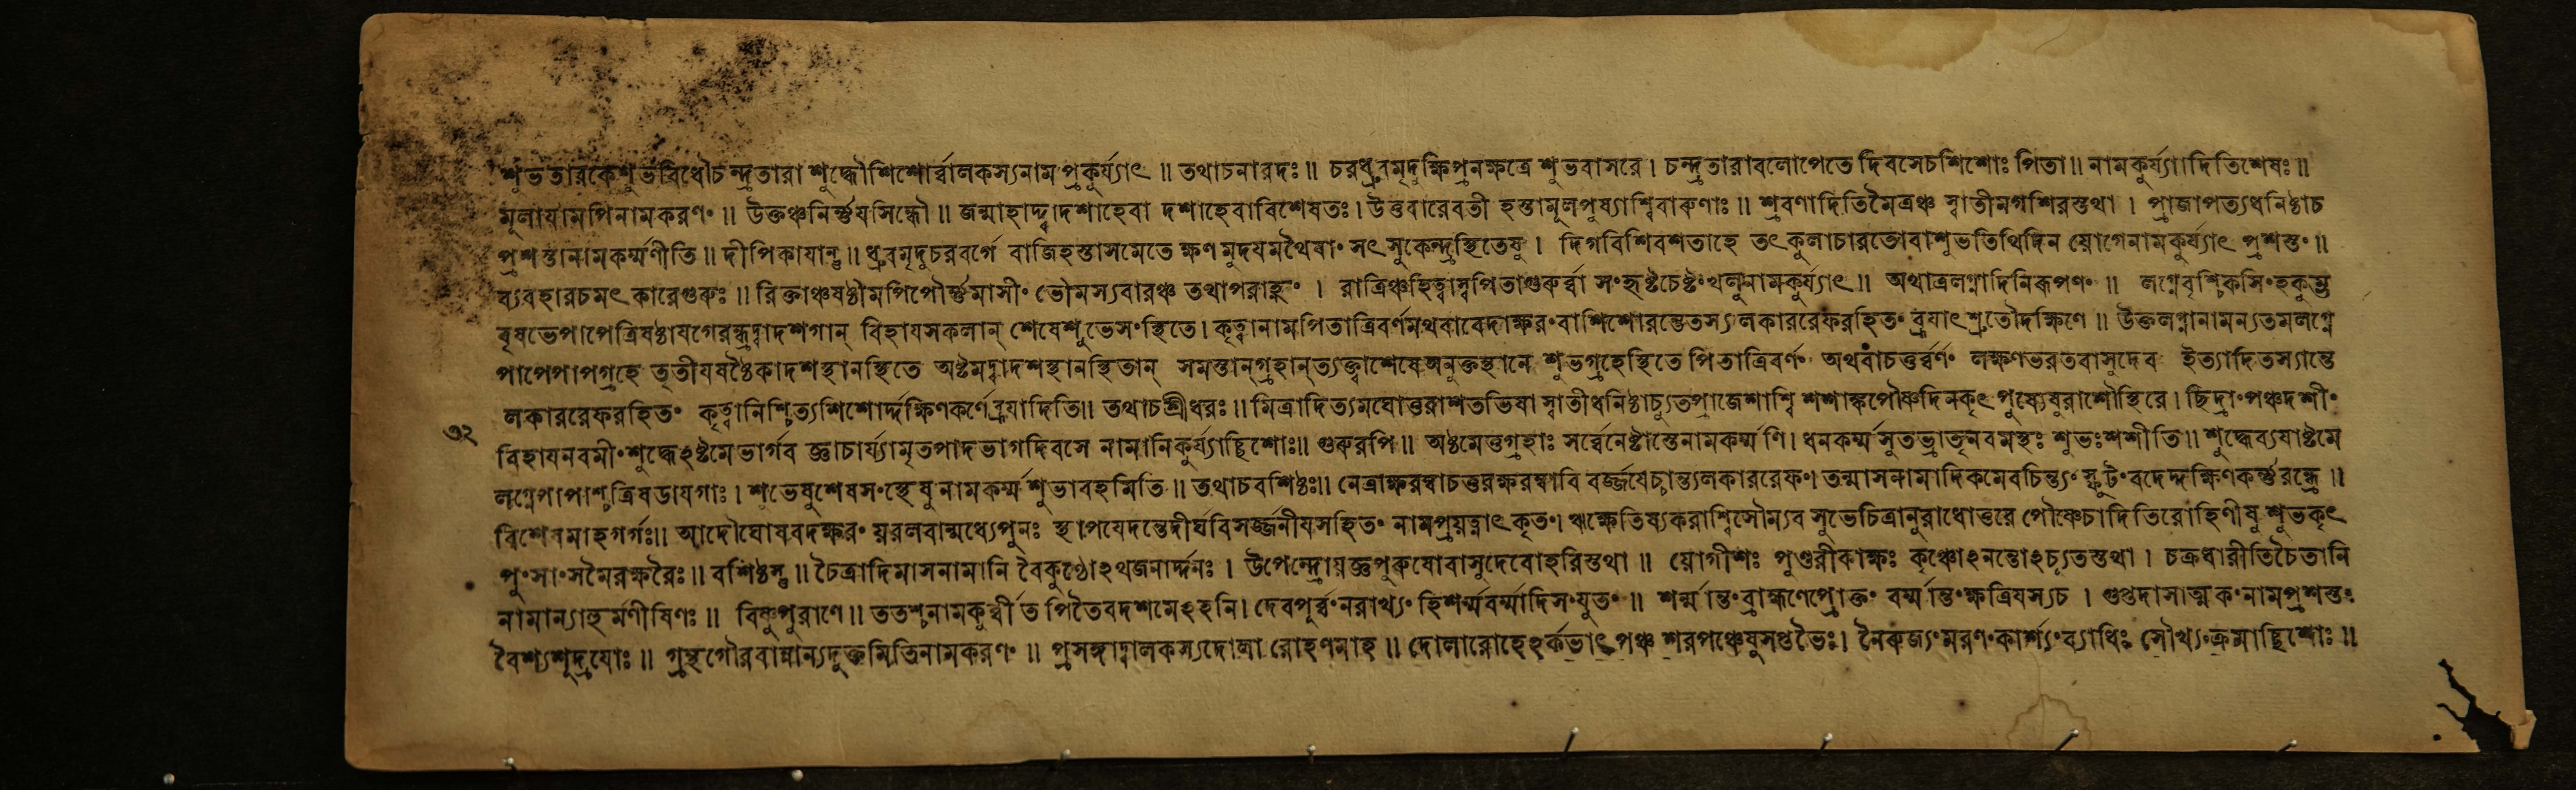 শুভতারকেশুভবিধৌচন্দ্রতারা শুদ্ধৌশিশোর্ব্বালকস্যনাম প্রকুর্য্যাৎ ॥ তথাচনারদঃ ॥ চরধ্রুবমৃদুক্ষিপ্রনক্ষত্রে শুভবাসরে । চন্দ্রতারাবলোপেতে দিবসেচশিশোঃ পিতা ॥ নামকুর্য্যাদিতিশেষঃ ॥
মূলাযামপিনামকরণং ॥ উক্তঞ্চনির্ন্নযসিন্ধৌ ॥ জন্মাহাদ্দ্বাদশাহেবা দশাহেবাবিশেষতঃ । উত্তবারেবতী হস্তামূলপুষ্যাশ্বিবারুণাঃ ॥ শ্রবণাদিতিমৈত্রঞ্চ স্বাতীমগশিরস্তথা । প্রাজাপত্যধনিষ্ঠাচ
প্রশস্তানামকর্ম্মণীতি ॥ দীপিকাযান্তু ॥ ধ্রুবমৃদুচরবর্গে বাজিহস্তাসমেতে ক্ষণমুদযমথৈষাং সৎসুকেন্দ্রস্থিতেষু । দিগবিশিবশতাহে তৎকুলাচারতোবাশুভতিথিদিন য়োগেনামকুর্য্যাৎ প্রশস্তং ॥
ব্যবহারচমৎকারেগুরুঃ ॥ রিক্তাঞ্চষষ্ঠীমপিপৌর্ন্নমাসীং ভৌমস্যবারঞ্চ তথাপরাহ্নং । রাত্রিঞ্চহিত্বাস্বপিতাগুরুর্ব্বা সংহৃষ্টচেষ্টঃখলুনামকুর্য্যাৎ ॥ অথাত্রলগ্নাদিনিরূপণং ॥ লগ্নেবৃশ্চিকসিংহকুম্ভ
বৃষভেপাপেত্রিষষ্ঠাযগেরন্ধ্রদ্বাদশগান্ বিহাযসকলান্ শেষেশুভেসংস্থিতে । কৃত্বানামপিতাত্রিবর্ণমথবাবেদাক্ষরংবাশিশোরন্তেতস্যলকাররেফরহিতং ব্রূযাৎশ্রুতৌদক্ষিণে ॥ উক্তলগ্নানামন্যতমলগ্নে
পাপেপাপগ্রহে তৃতীযষষ্ঠৈকাদশস্থানস্থিতে অষ্টমদ্বাদশস্থানস্থিতান্ সমস্তান্গ্রহান্ত্যক্ত্বাশেষেঅনুক্তস্থানে শুভগ্রহেস্থিতে পিতাত্রিবর্ণং অথবাচত্তর্ব্বর্ণং লক্ষণভরতবাসুদেব ইত্যাদিতস্যান্তে
লকাররেফরহিতং কৃত্বানিশ্চিত্যশিশোর্দ্দক্ষিণকর্ণেব্রূযাদিতি ॥ তথাচশ্রীধরঃ ॥ মিত্রাদিত্যমঘোত্তরাশতভিষা স্বাতীধনিষ্ঠাচ্যুতপ্রাজেশাশ্বি শশাঙ্কপৌষ্ণদিনকৃৎপুষ্যেষুরাশৌস্থিরে । ছিদ্রাং পঞ্চদশীং
৩২
বিহাযনবমীং শুদ্ধেঽষ্টমেভার্গব জ্ঞাচার্য্যামৃতপাদভাগদিবসে নামানিকুর্য্যাচ্ছিশোঃ ॥ গুরুরপি ॥ অষ্টমেত্তগ্রহাঃ সর্ব্বেনেষ্টাস্তেনামকর্ম্মণি । ধনকর্ম্মসুতভ্রাতৃনবমস্থঃ শুভঃশশীতি ॥ শুদ্ধেব্যযাষ্টমে
লগ্নেপাপাশ্চত্রিষডাযগাঃ । শুভেষুশেষসংস্থেষুনামকর্ম্মশুভাবহমিতি ॥ তথাচবশিষ্ঠঃ ॥ নেত্রাক্ষরম্বাচত্তরক্ষরম্বাবি বর্জ্জযেচ্চান্ত্যলকাররেফং । তন্মাসনামাদিকমেবচিন্ত্যং স্ফুটং বদেদ্দক্ষিণকর্ন্নরন্ধ্রে ॥
বিশেষমাহগর্গঃ ॥ আদৌঘোষবদক্ষরং য়রলবান্মধ্যেপুনঃ স্থাপযেদন্তেদীর্ঘবিসর্জ্জনীযসহিতং নামপ্রয়ত্নাৎ কৃতং । ঋক্ষেতিষ্যকরাশ্বিসৌম্যব সুভেচিত্রানুরাধোত্তরে পৌষ্ণেচাদিতিরোহিণীষু শুভকৃৎ
পুংসাং সমৈরক্ষরৈঃ ॥ বশিষ্ঠস্তু ॥ চৈত্রাদিমাসনামানি বৈকুণ্ঠোঽথজনার্দ্দনঃ । উপেন্দ্রোয়জ্ঞপুরুষোবাসুদেবোহরিস্তথা ॥ য়োগীশঃ পুণ্ডরীকাক্ষঃ কৃষ্ণোঽনন্তোঽচ্যুতস্তথা । চক্রধারীতিচৈতানি
নামান্যাহুর্মণীষিণঃ ॥ বিষ্ণুপুরাণে ॥ ততশ্চনামকুর্ব্বীত পিতৈবদশমেঽহনি । দেবপূর্ব্বংনরাখ্যং হিশর্ম্মবর্ম্মাদিসংযুতং ॥ শর্ম্মান্তংব্রাহ্মণেপ্রোক্তং বর্ম্মান্তংক্ষত্রিযস্যচ । গুপ্তদাসাত্মকংনামপ্রশস্তং
বৈশ্যশূদ্রযোঃ ॥ গ্রন্থগৌরবান্নান্যদুক্তমিতিনামকরণং ॥ প্রসঙ্গাদ্বালকস্যদোলা রোহণমাহ ॥ দোলারোহেঽর্কভাৎ পঞ্চ শরপঞ্চেষুসপ্তভৈঃ । নৈরুজ্যং মরণংকার্শ্যংব্যাধিঃ সৌখ্যংক্রমাচ্ছিশোঃ ॥